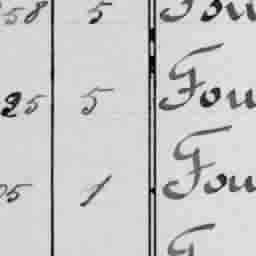 58 5 Fou
25 5 Fou
05 1 Fou